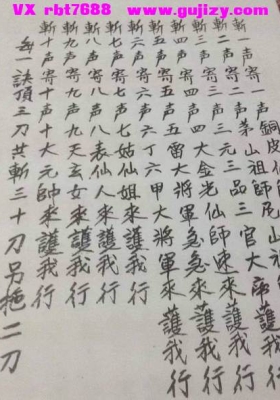 VX rbt7688 www.gujizy.com
斬一声寄一声銅皮
斬二声寄二声茅山祖師
斬三声寄三声三元三品三官大帝護我行
斬四声寄四声四大金光仙師速來護我行
斬五声寄五声五雷大將軍急來護我行
斬六声寄六声六丁六甲大將軍來護我行
斬七声寄七声七姑仙姐來護我行
斬八声寄八声八表仙人來護我行
斬九声寄九声九天玄女來護我行
斬十声寄十声十大元帥來護我行
每一訣頂三刀共斬三十刀吊拖二刀